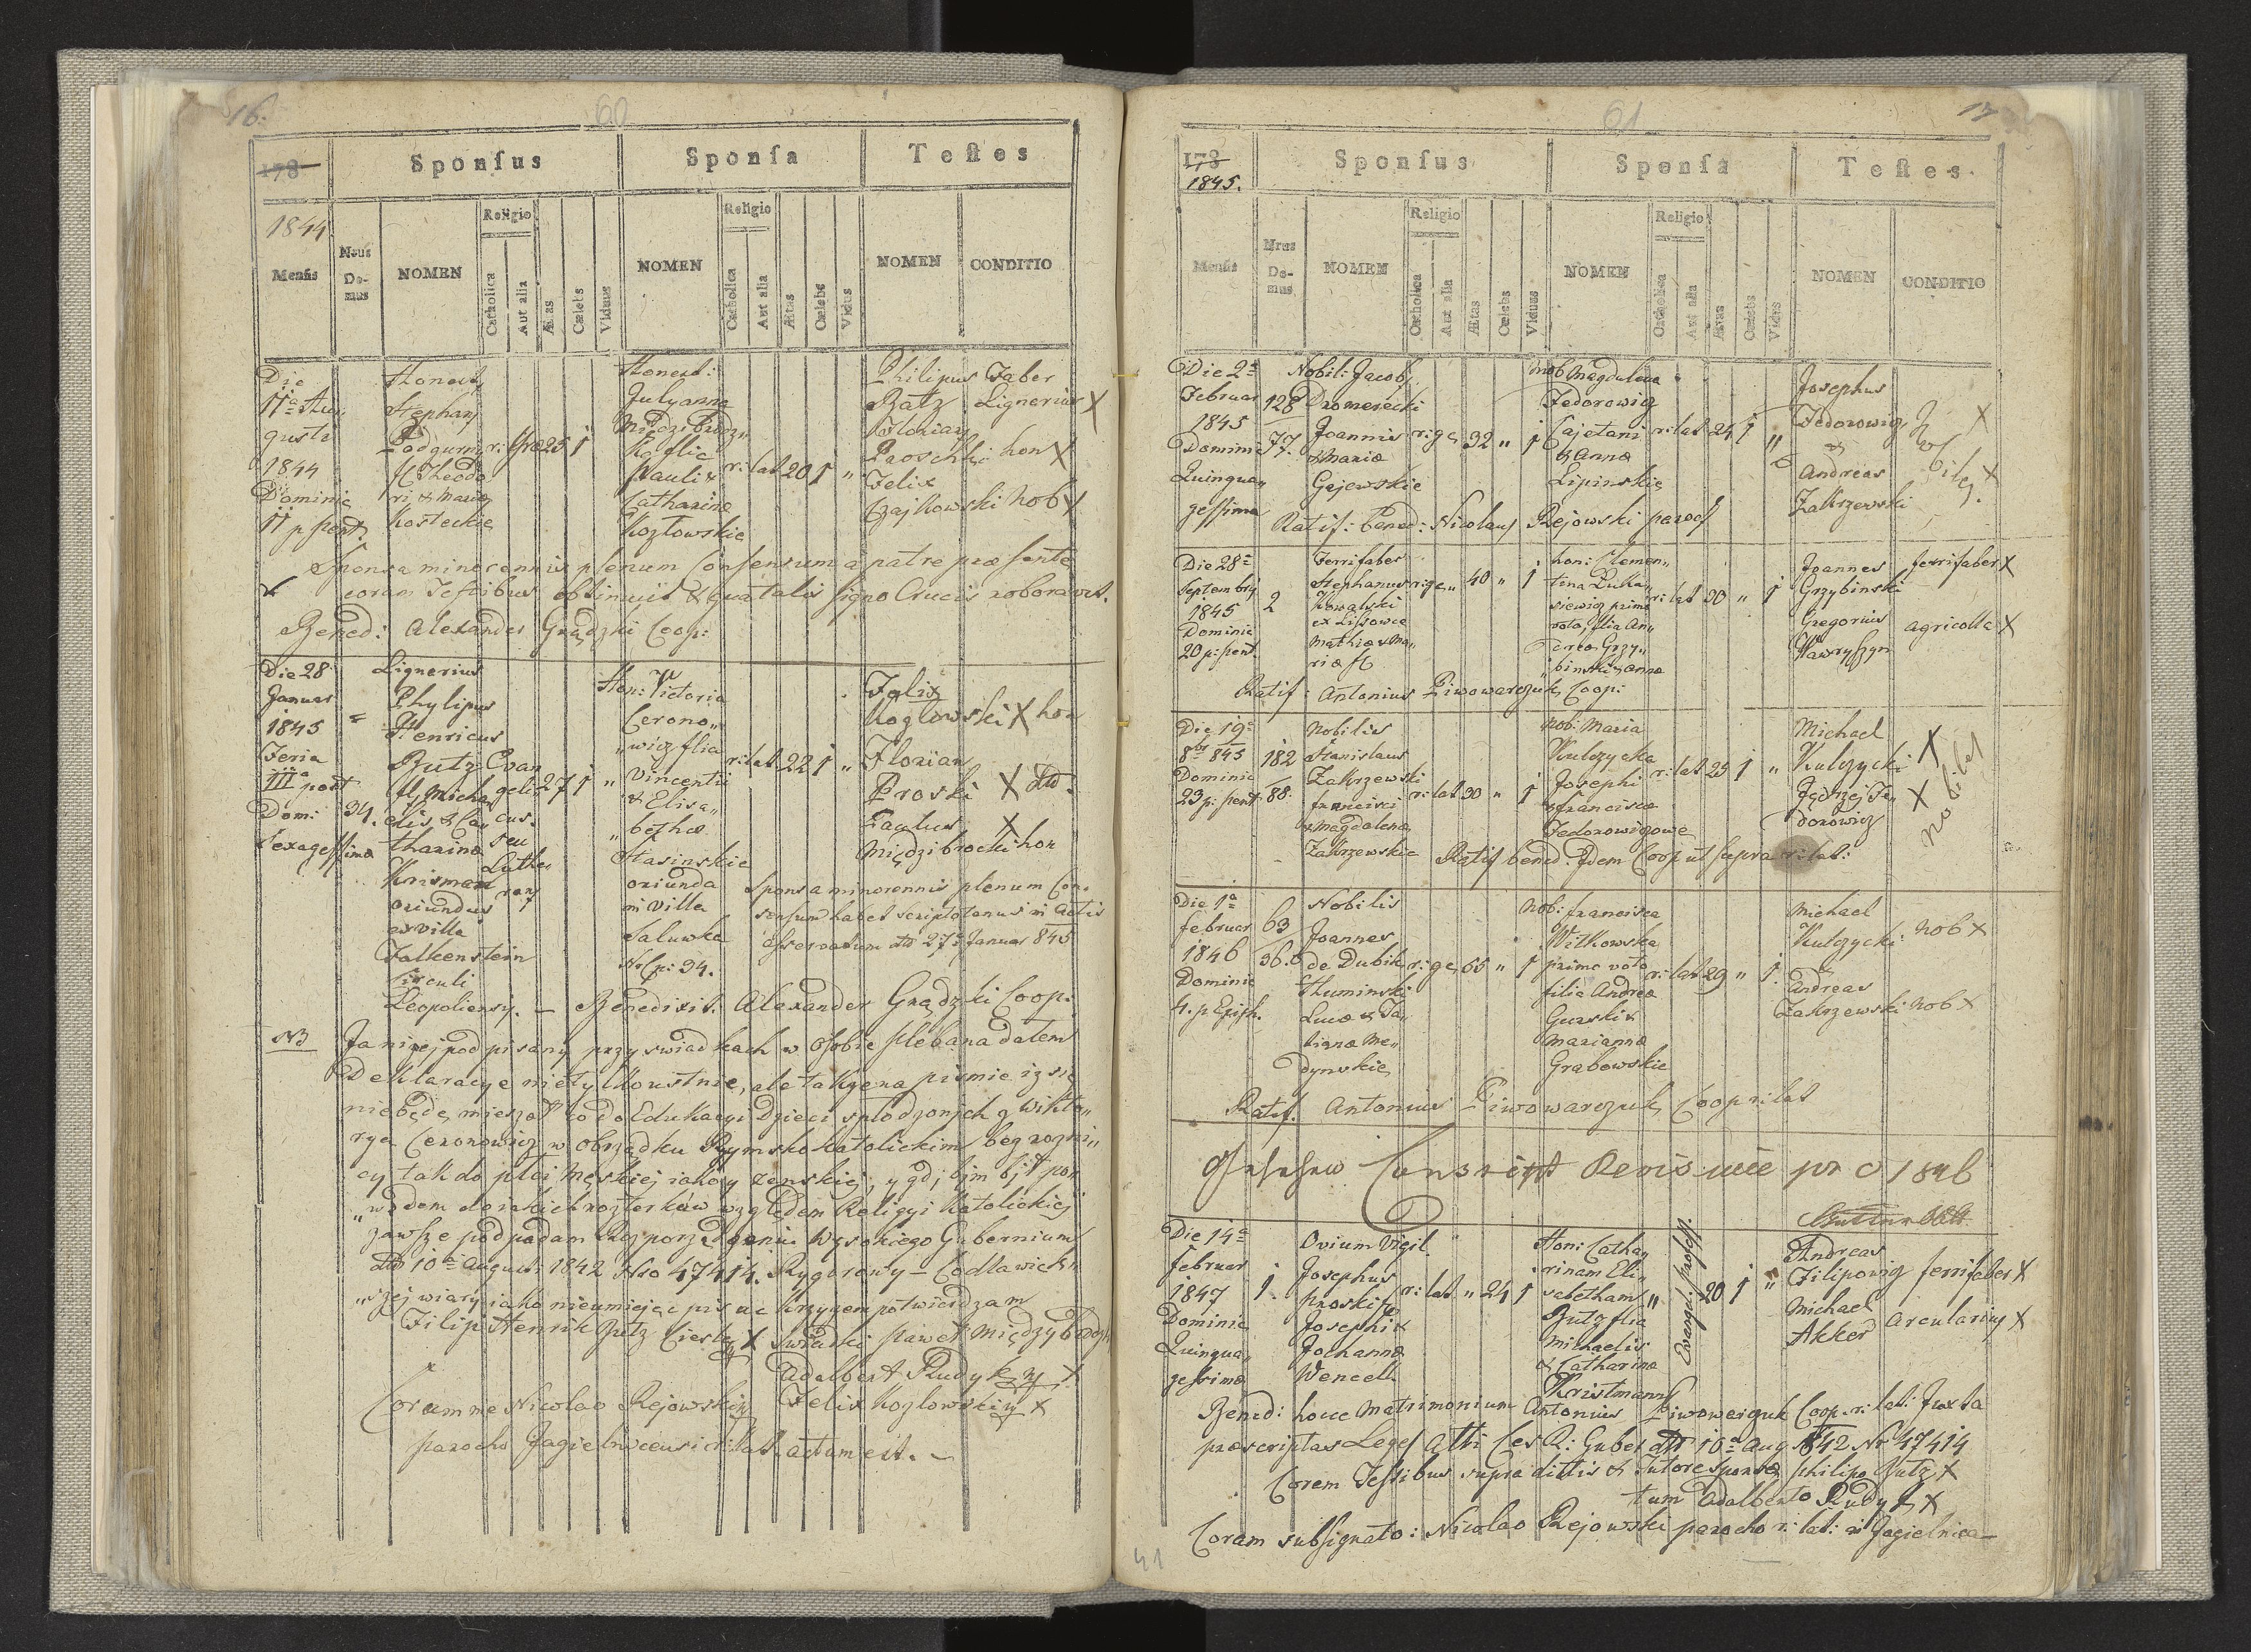 16.
60
178
Sponsus
Sponsa
Testes
1844
Mensis
Nrus Domus
NOMEN
Religio
Catholica
Aut alia
Ætas
Cœlebs
Viduus
NOMEN
Religio
Catholica
Aut alia
Ætas
Cœlebs
Vidua
NOMEN
CONDITIO
Die
11ª Au
gusti
1844
Dominic
11 p pent.
Honest,
Stephan
Podgurny
fl Theodo
ri & Maria
Kosteckie
25 1
Honest:
Julyanna
Międzibrodz
Ka flia
Pauli &
Catharina
Kozłowskie
r: lat 20 1 "
Philipus Faber
Batz Lignerius X
Florian
Proschki hon X
Felix
Czajkowski nob X
Sponsa minorennis plenum Consensum a patre præsente
coram Testibus obtinuit & qua talis signo Crucis roboravit.
Bened: Alexander Grądzki Coop:
Die 28
Januar
1845
Feria
IIIª post
Dom:
Sexagessima
34.
Lignerius
Phylipus
Henricus
Butz Evan
fl Micha geli 27 1 "
elis & Ca cus.
tharina seu
Krisman Luthe
oriundus rany
ex villa
Falkenstein
Circuli
Leopoliensy.
Hon: Victoria
Cerono"
"wicz flia
Vincentii
& Elisa"
"betha
Stasinskie
oriunda
in villa
Saluwka
N. C. 34.
r: lat 22 1 "
Felix
Kozlowski X hon
Florian
Proski X dto.
Paulus X
Międzibrocki hon
Sponsa minorennis plenum Con.
sensum habet scriptotenus in actis
asservatum dto 27ª Januar 845
Benedixit. Alexander Grądzki Coop:
NB
Ja niżej podpisany przy swiadkach w osobie plebana dałem
Deklaracye nietylko ustnie, ale takze na pismie iz się
niebędę mieszał do Edukacyi Dzieci spłodzonych z Wikto"
rya Ceronowicz w obrządku Rzymsko katolickim bez rozni"
cy tak do płci męskiej iako y zenskiej, y gdybym był po
"wodem do iakich rozterków względem Religyi Katolickiej
zawsze podpadam Rozporządzeniu Wysokiego Gubernium
dto 10ª August 1842 Nro 47414. Rygorowy - Codławick"
"szej wiary iako nieumiejąc pisac krzyzem potwierdzam
Filip Henrik Butz Ciesla X Swiadki Paweł Międzybrodz
Adalbert Rudyk X
Coram me Nicolao Rejowski Felix Kozłowski X
parocho Jagielnicensi r: lat actum est.
61
17
178
1845.
Sponsus
Sponsa
Testes
Mensis
Nrus Domus
NOMEN
Religio
Catholica
Aut alia
Ætas
Cœlebs
Viduus
NOMEN
Religio
Catholica
Aut alia
Ætas
Cœlebs
Vidua
NOMEN
CONDITIO
Die 2ª
Februar
1845
Dominic
Quinqua"
gessima
128
77.
Nobil: Jacob,
Dromerecki
Joannis
& Maria
Gejewskie
r: g c 32 " 1
nob Magdalena
Fedorowicz
Cajetani
& Anna
Lipinskie
r: lat 24 1 "
Josephus
Fedorowicz X
&
Andreas
Zakrzewski X
nobiles.
Ratif: bened: Nicolaus Rejowski paroch
Die 28ª
Septembris
1845
Dominic
20 p: pent.
2
Ferrifaber
Stephanus r: g c " 40 " 1
Kowalski
ex Lissowce
Mathias & Ma"
ria fl
hon: Clemen"
tina Luka"
siewicz primo
voto, filia An"
Grzy"
binski & Anna
r: lat 30 " 1
Joannes ferrifaber X
Grzybinski
Gregorius agricolla X
Wawryszyn
Ratif: Antonius Piwowarczuk Coop:
Die 19ª
8bris 845
Dominic
23 p: pent
182
88.
Nobilis
Stanislaus
Zakrzewski
francisci
& Magdalena
Zakrzewskie
r: lat 30 " 1
nob: Maria
Kulczycka
Josephi
& francisca
Fedorowiczowe
r: lat 25 1 "
Michael
Kulczycki X
Jędrzej Fe"
dorowicz X
Nobiles
Ratif bened: Idem Coop ut supra r: lat:
Die 1ª
februar
1846
Dominic
4. p Epiph.
63
36.
Nobilis
Joannes
de Dubik
Thuminski
Luca & Ta"
tiana Me"
dynskie
r: g c, 65 " 1
nob: francisca
Witkowska
primo voto
filia Andrea
Gurski &
Marianna
Grabowskie
r: lat 29 " 1
Michael
Kulczycki nob X
&
Andreas
Zakrzewski nob X
Ratif. Antonius Piwowarczuk Coop r: lat
Gesehen Conscript Revision pr 1846
Die 14ª
februar
1847
Dominic
Quinqua"
gessima
1.
Ovium vigil.
Josephus
Proski fl
Josephi &
Johanna
Wencel
r: lat " 24 1
Hon: Catha
rinam Eli"
sabetham
Butz flia
Michaelis
& Catharina
Kristmann
Evangel: profess.
20 1 "
Andreas
Filipowicz ferrifaber X
Michael
Akker arcularius X
Bened: hocce matrimonium Antonius Piwowarczuk Coop. r. lat: Juxta
præscriptas Leges Alti Ces R: Guber dto 10ª Aug 842 Nr 47414
Coram Testibus supra dictis & Tutore sponsæ Philipo Butz X
tum Adalberto Rudyk X
Coram subsignato: Nicolao Rejowski parocho r: lat: in Jagielnica
41